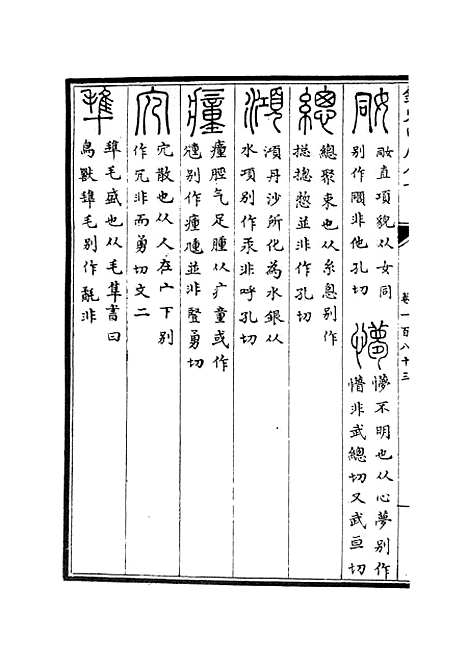 卷一百八十三
姛直項貌从女同
別作𨳝非他孔切
懜不明也从心夢別作
懵非武總切又武亘切
總聚束也从糸悤別作
揔摠惣並非作孔切
澒丹沙所化為水銀从
水項別作汞非呼孔切
㿈脛气足腫从疒童或作
尰別作瘇㣫並非豎勇切
宂散也从人在宀下別
作冗非而勇切文二
𣯍毛盛也从毛隼書曰
鳥獸𣯍毛別作氄非